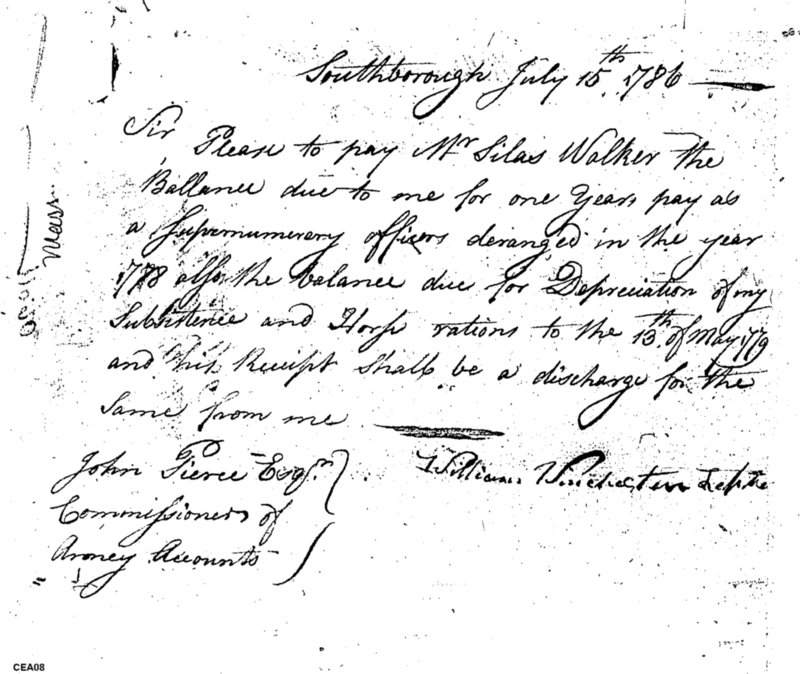 Southborough July 15th 1786
Sir Please to pay Mr Silas Walker the
Ballance due to me for one Years pay as
a Supernumerary officers deranged in the year
1778 also the balance due for Depreciation of my
Subsistence and Horse rations to the 13th of May 1779
and his Receipt shall be a discharge for the
same from me
William Winchester
John Pierce Esqr
Commissioners of
Armey Accounts
Mass
CEA08